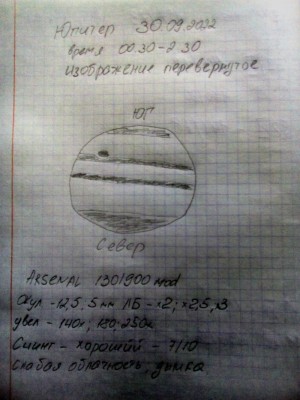 Юпитер 30.09.2022
время 00.30-2.30
Изображение перевернутое
ЮП
Север
Arsenal 130/900 mod
Окул - 12,5, 5 мм ЛБ - x2; x2,5; x3
увел - 140x, 180-250x
Сиинг - хороший - 7/10
слабая облачность, дымка